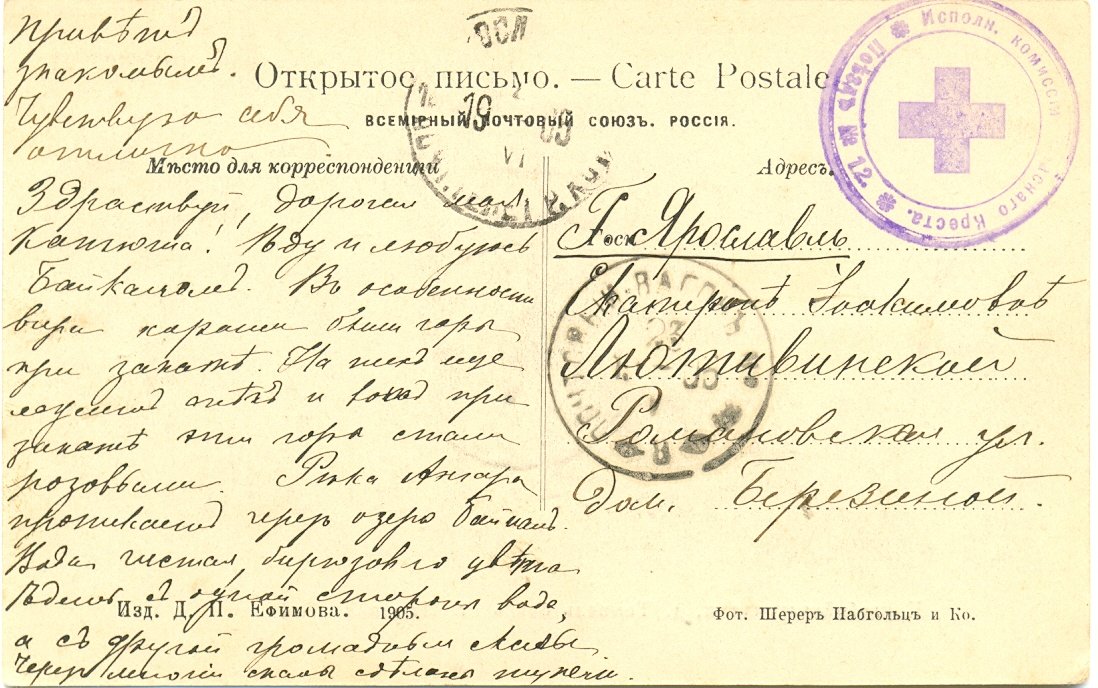 Привѣтъ
знакомымъ.
Чувствую себя
отлично
Открытое письмо. — Carte Postale
ВСЕМІРНЫЙ ПОЧТОВЫЙ СОЮЗЪ. РОССІЯ.
Мѣсто для корреспонденціи
Адресъ.
Здраствуй, дорогая моя
Катюша! Ѣду и любуюсь
Байкаломъ. Въ особенности
вчера хороши были горы
при закатѣ. На нихъ еще
снѣгъ и при
закатѣ эти горы стали
розовыми. Рѣка Ангара
протикаетъ черезъ озеро Байкалъ.
Вода чистая, бирюзовго цвѣта
Ѣдемъ съ одной стороны вода,
а съ другой громадныя скалы.
Черезъ многія скалы сдѣланы тунели.
Г. Ярославль
Екатеринѣ Іоакимовнѣ
Лютивинской
Романовская ул.
дом. Березиной.
Изд. Д. П. Ефимова. 1905.
Фот. Шереръ Набгольцъ и Ко.
Исполн. комиссія Краснаго Креста.
12.
19
VI
ПОЧТОВЫЙ ВАГОНЪ
23